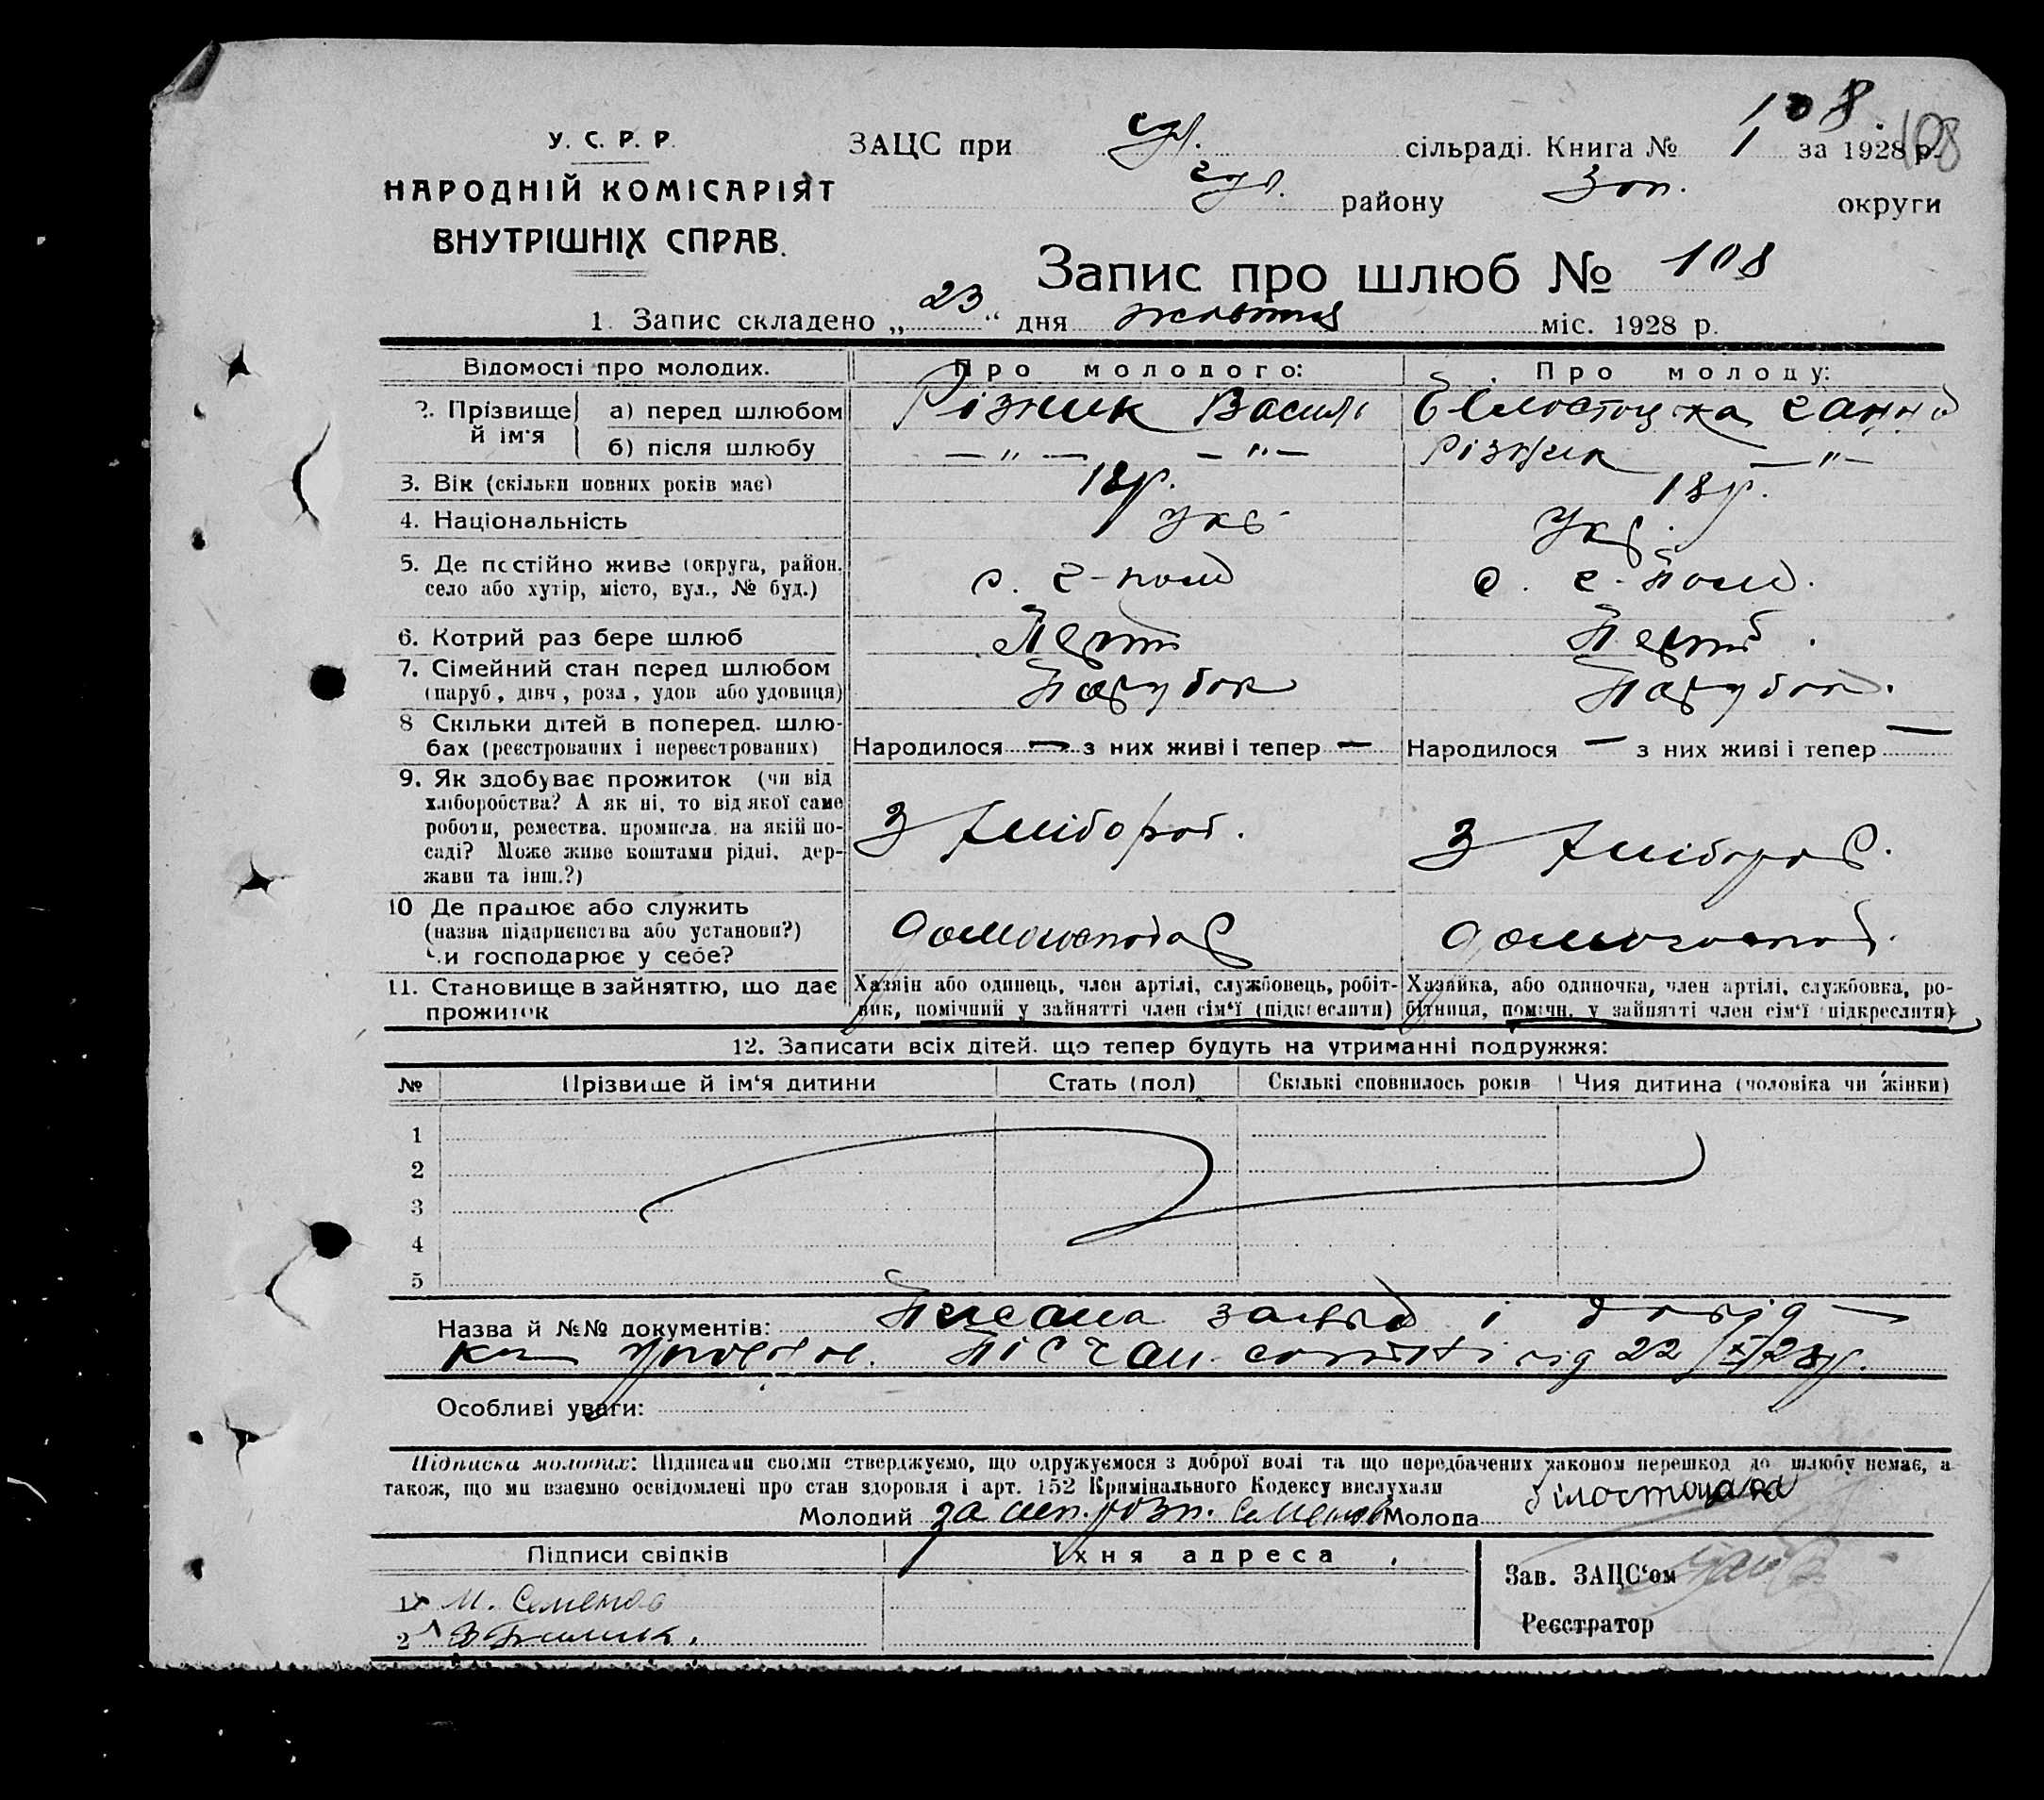 108.
108
У. С. Р. Р.
ЗАЦС при сільраді. Книга № 1 за 1928 р.
НАРОДНІЙ КОМІСАРІЯТ
району Зап. округи
ВНУТРІШНІХ СПРАВ.
Запис про шлюб № 108
1. Запис складено „23“ дня жовтня міс. 1928 р.
Відомості про молодих. Про молодого: Про молоду:
2. Прізвище й ім'я а) перед шлюбом Різник Василь Білостоцка Ганна
б) після шлюбу — " — — " — Різник — " —
3. Вік (скільки повних років має) 18 р. 18 р.
4. Національність Укр. Укр.
5. Де постійно живе (округа, район, с. Г-поле с. Г-Поле.
село або хутір, місто, вул., № буд.)
6. Котрий раз бере шлюб Перш Перш.
7. Сімейний стан перед шлюбом Парубок Парубок.
(паруб., дівч., розл., удов. або удовиця)
8 Скільки дітей в поперед. шлю-
бах (реєстрованих і нереєстрованих) Народилося — з них живі і тепер — Народилося — з них живі і тепер —
9. Як здобуває прожиток (чи від
хліборобства? А як ні, то від якої саме
роботи, ремества, промисла, на якій по- З хлібороб. З хлібороб.
саді? Може живе коштами рідні, дер-
жави та інш.?)
10 Де працює або служить
(назва підприємства або установи?) Домогосподар Домогоспод.
Чи господарює у себе?
11. Становище в зайняттю, що дає Хазяїн або одинець, член артілі, службовець, робіт- Хазяйка, або одиночка, член артілі, службовка, ро-
прожиток ник, помічний у зайнятті член сім'ї (підкреслити) бітниця, помічн. у зайнятті член сім'ї (підкреслити)
12. Записати всіх дітей, що тепер будуть на утриманні подружжя:
№ Прізвище й ім'я дитини Стать (пол) Скількі сповнилось років Чия дитина (чоловіка чи жінки)
1
2
3
4
5
Назва й №№ документів: і довід
від 22/X/28 р.
Особливі уваги:
Підписка молодих: Підписами своїми стверджуємо, що одружуємося з доброї волі та що передбачених законом перешкод до шлюбу немає, а
також, що ми взаємно освідомлені про стан здоровля і арт. 152 Кримінального Кодексу вислухали
Молодий за неп. розп. Семенов Молода Білостоцка
Підписи свідків Їхня адреса
Зав. ЗАЦС'ом
1 М. Семенов
Реєстратор
2